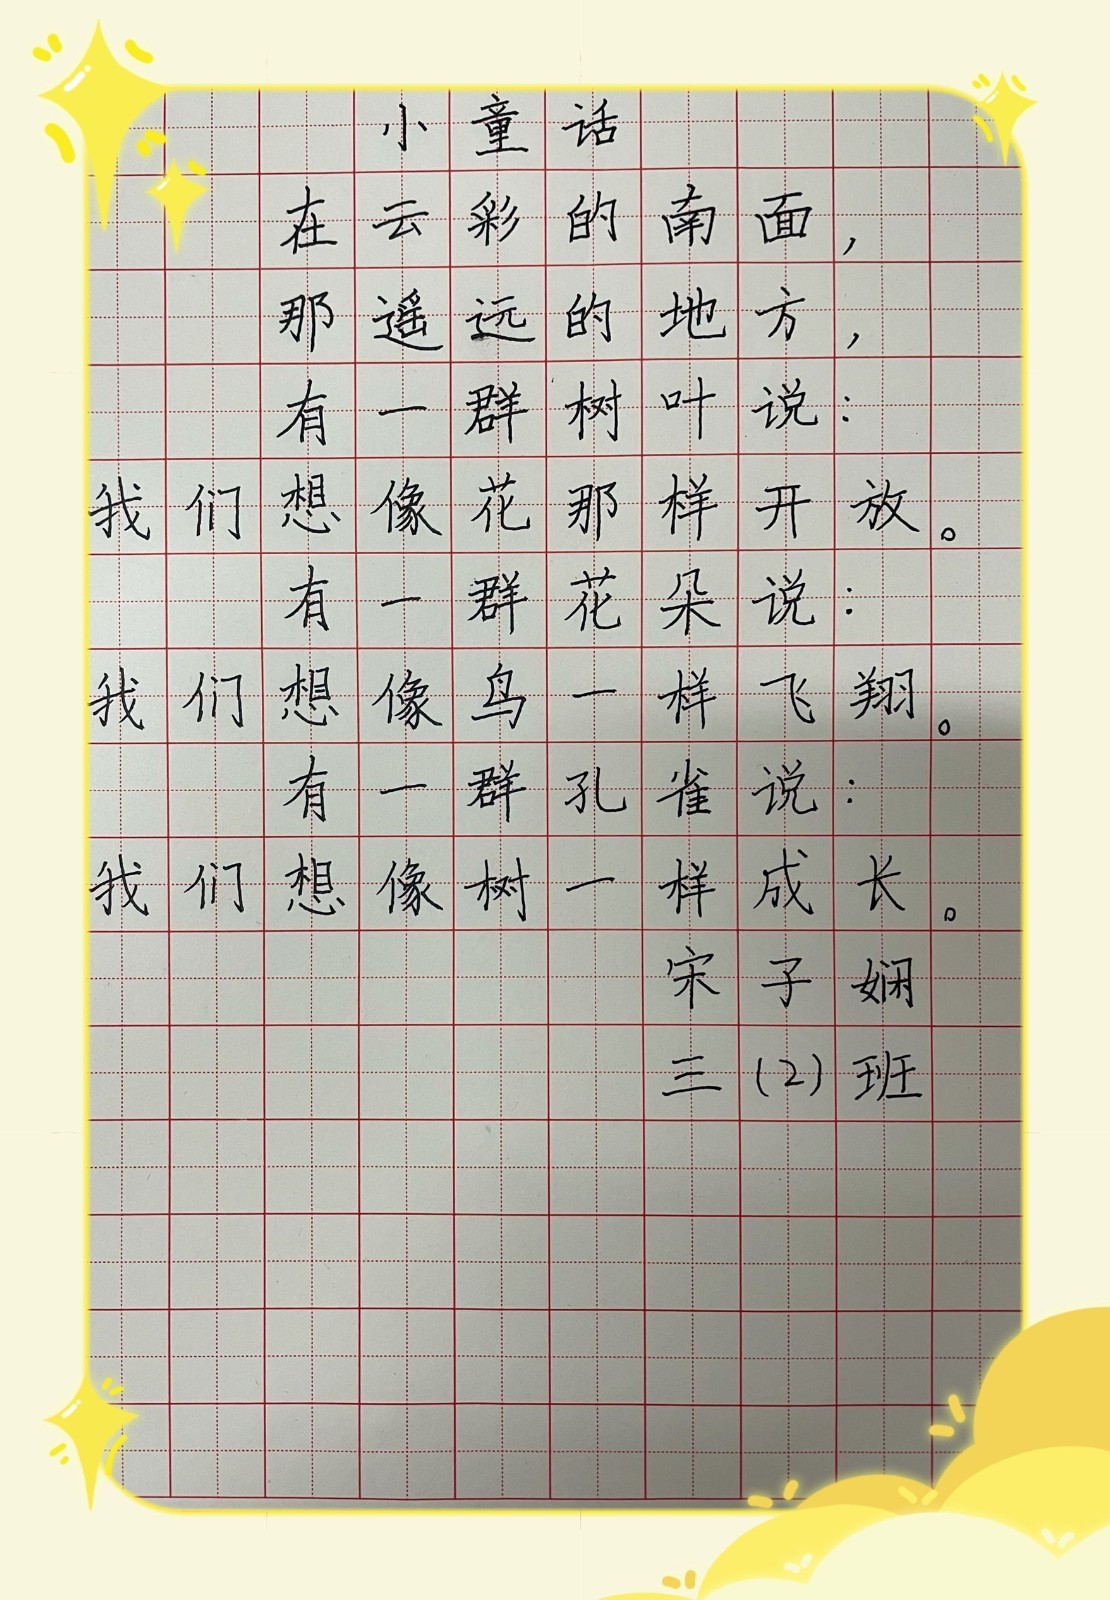 小童话
在云彩的南面，
那遥远的地方，
有一群树叶说：
我们想像花那样开放。
有一群花朵说：
我们想像鸟一样飞翔。
有一群孔雀说：
我们想像树一样成长。
宋子娴
三(2)班